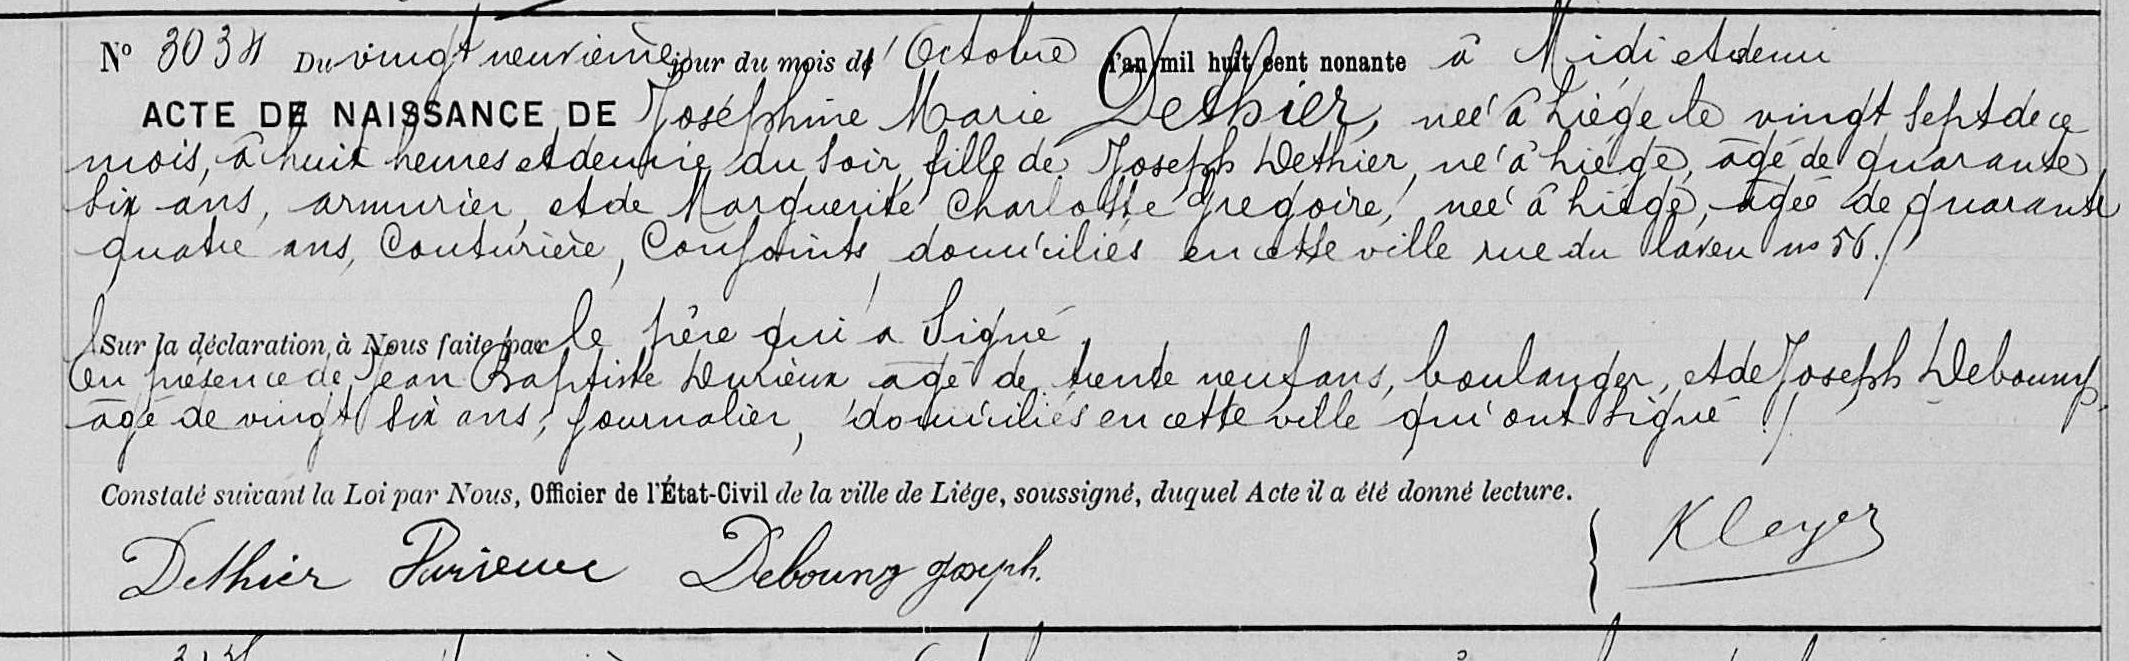 N° 3034 Du vingt neuvième jour du mois d' Octobre l'an mil huit cent nonante à Midi et demi
ACTE DE NAISSANCE DE Joséphine Marie Dethier, née à Liége le vingt sept de ce
mois, à huit heures et demie du soir, fille de Joseph Dethier, né à Liége, âgé de quarante
six ans, armurier, et de Marguerite Charlotte Gregoire, née à Liége, âgée de quarante
quatre ans, Couturière, Conjoints, domiciliés en cette ville rue du laveu no 56./
Sur la déclaration à Nous faite par le père qui a Signé
En présence de Jean Baptiste Durieux âgé de trente neuf ans, boulanger, et de Joseph Debouny,
âgé de vingt six ans, journalier, domiciliés en cette ville qui ont signé ./
Constaté suivant la Loi par Nous, Officier de l'État-Civil de la ville de Liége, soussigné, duquel Acte il a été donné lecture.
Dethier Durieux Debouny Joseph. Kleyer